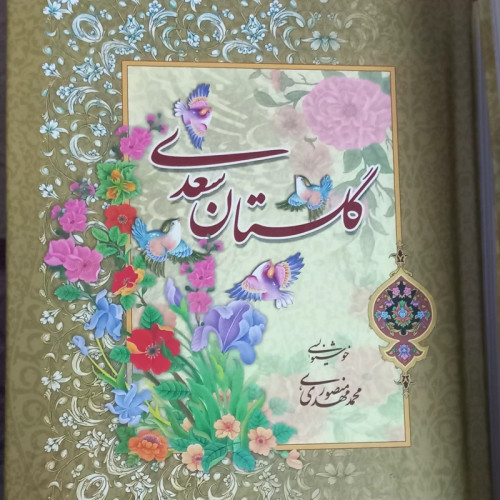 گلستان سعدی
خوشنویسی
محمد مهدی منصوری